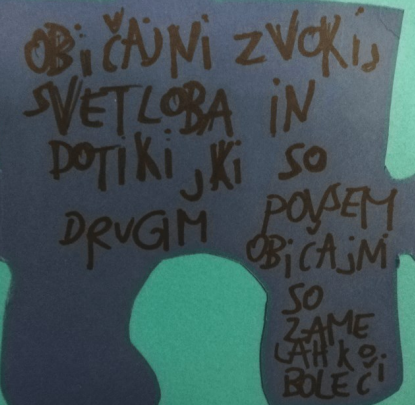 OBIČAJNI ZVOKI,
SVETLOBA IN
DOTIKI, KI SO
DRUGIM POVSEM
OBICAJNI
SO
ZAME
LAHKO
BOLEČI